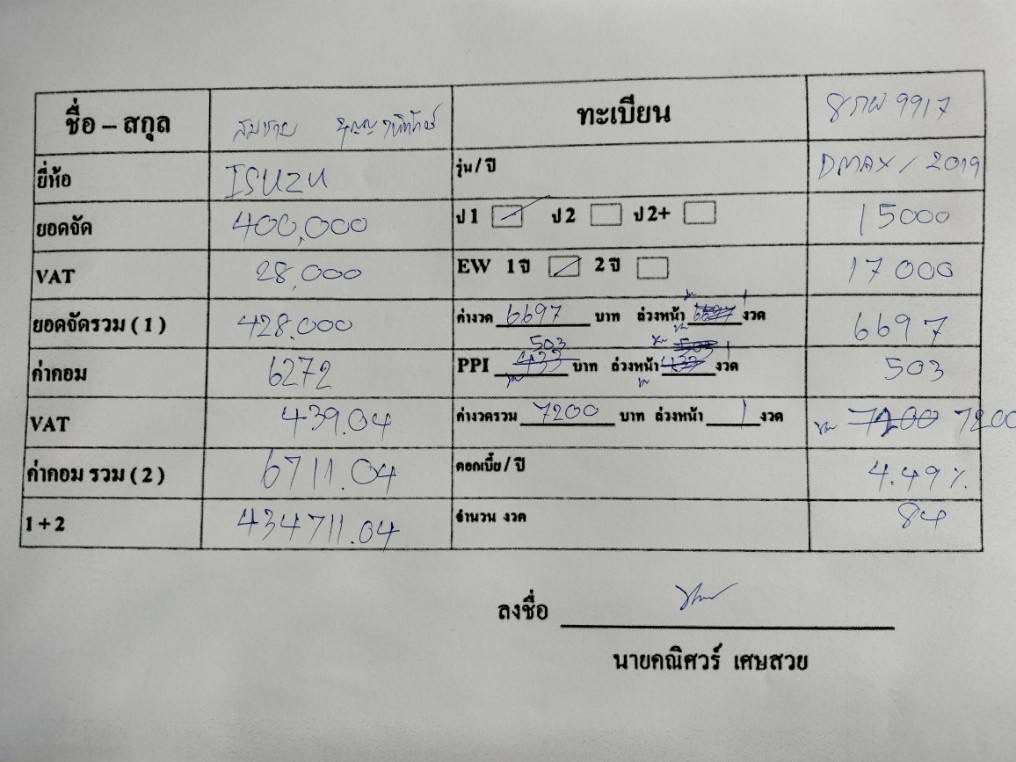 ชื่อ – สกุล สมชาย ทะเบียน 9917
ยี่ห้อ ISUZU รุ่น / ปี DMAX / 2019
ยอดจัด 400,000 ป1 ป2 ป2+ 15000
VAT 28,000 EW 1 ปี 2 ปี 17000
ยอดจัดรวม ( 1 ) 428.000 ค่างวด 6697 บาท ล่วงหน้า 1 งวด 6697
ค่าคอม 6272 PPI 503 บาท ล่วงหน้า 1 งวด 503
VAT 439.04 ค่างวดรวม 7200 บาท ล่วงหน้า 1 งวด 7200 7200
ค่าคอม รวม ( 2 ) 6711.04 ดอกเบี้ย / ปี 4.49%
1 + 2 434711.04 จำนวน งวด 84
ลงชื่อ
นายคณิศวร์ เศษสวย